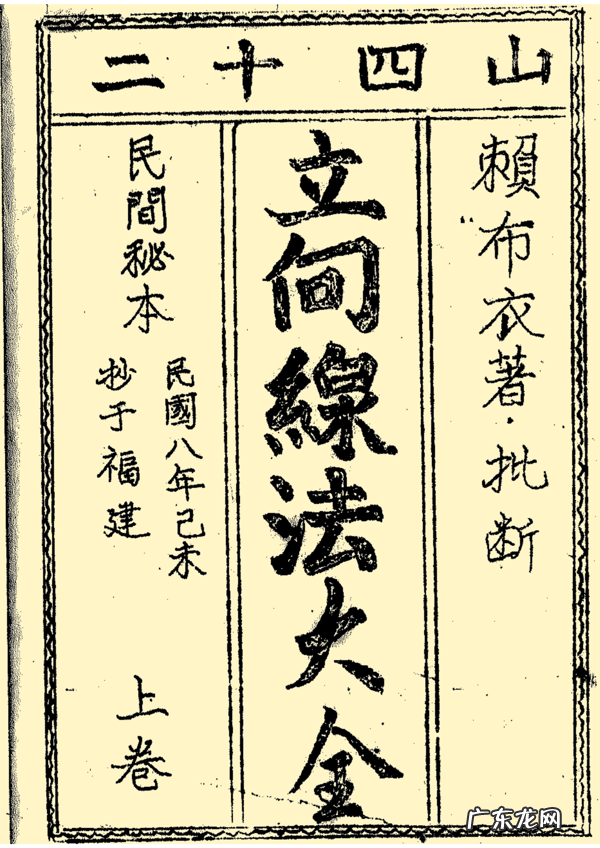 二十四山
賴布衣著·批断
立向線法大全
民間秘本
民國八年己未
抄于福建
上卷
广东龙网